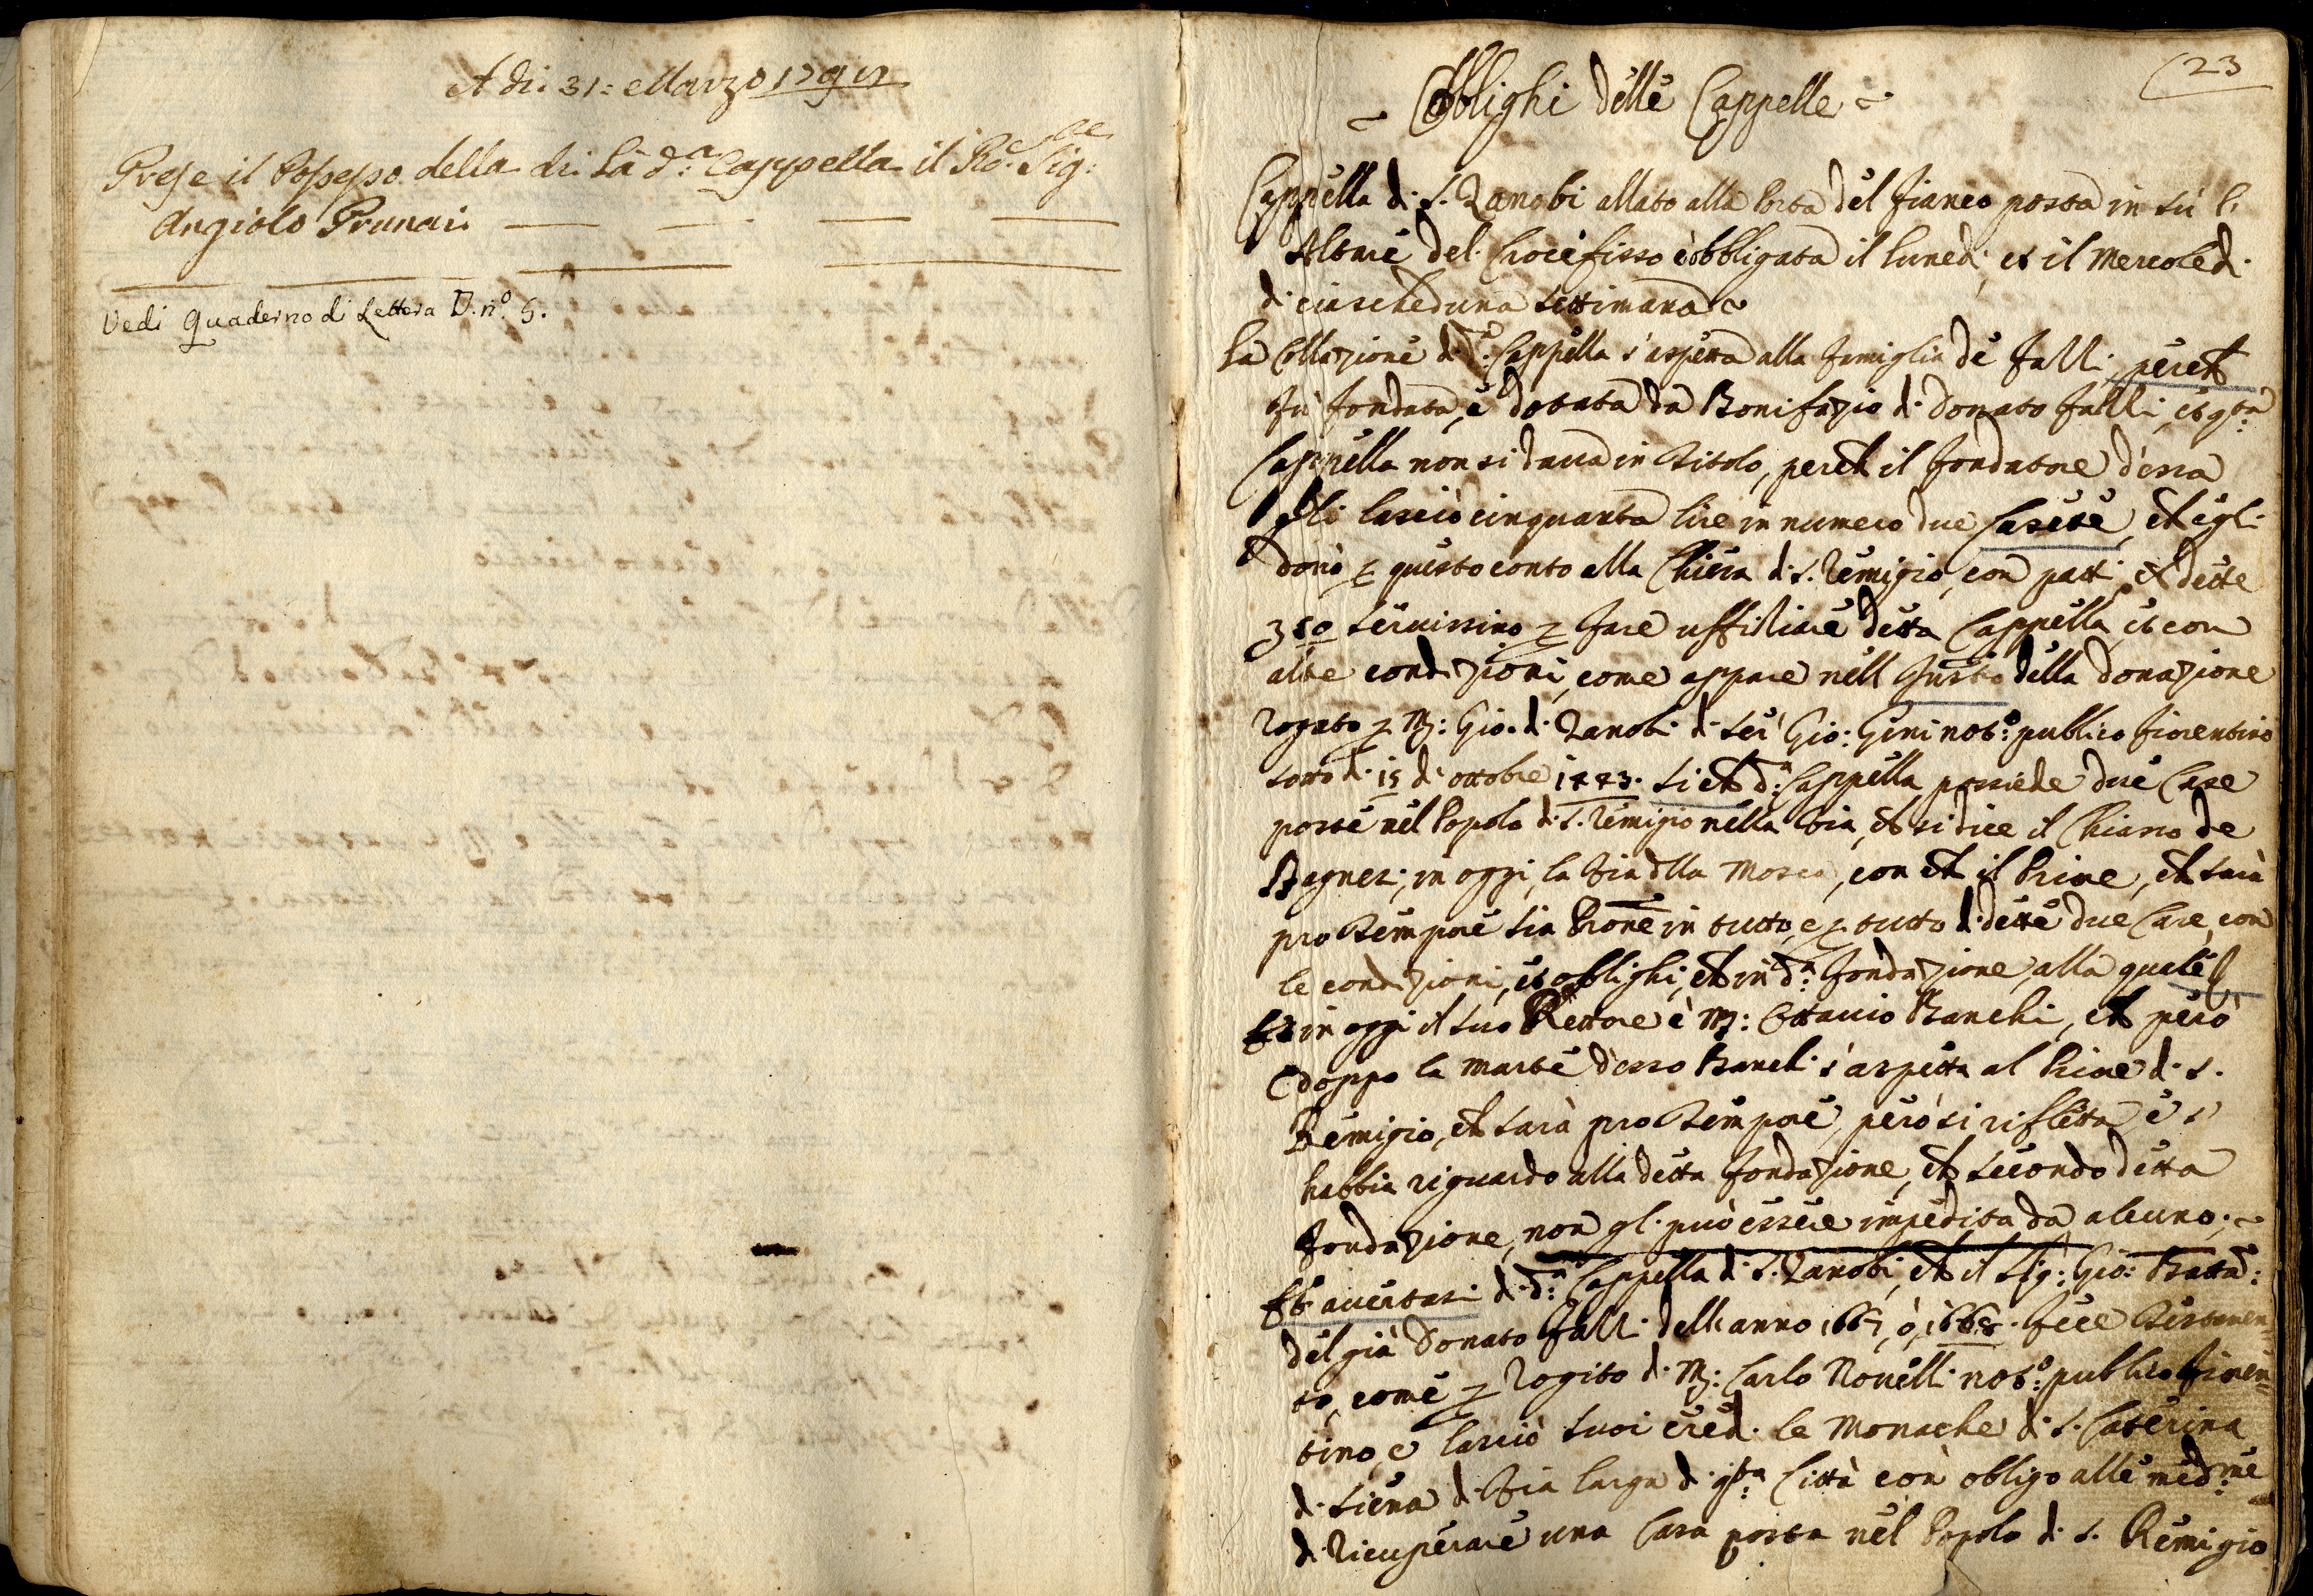 A di 31: Marzo 1791
Prese il Possesso della di là d.a Cappella il Re. Sig:
Angiolo Prunai
Vedi Quaderno di Lettera D. n.o 5.
23
Obblighi delle Cappelle
Cappella di S. Zanobi allato alla Porta del fianco posta in sù l'
Altare del Crocefisso è obbligata il lunedi, et il Mercoledi
di ciascheduna settimana
La Collazione di d.a Cappella s'aspetta alla famiglia de Falli, perche
fù fondata, e dotata da Bonifazio di Donato Falli, et q.ta
Cappella non si daua in titolo, perche il fondatore d'essa
gli lasciò cinquanta lire in numero due Casete, che egli
donò p questo conto alla Chiesa di S. Remigio, con patti, che dette
seruissino p fare uffiziare detta Cappella, et con
altre condizioni, come appare nell della donazione
rogato p M: Gio. di Zanobi di Ser Gio: Gini not.o publico fiorentino
sotto di 15 d'ottobre 1443. Si che d.a Cappella possiede due Case
poste nel Popolo di S. Remigio nella Via, che si dice il Chiasso de
Bagnesi, in oggi, la Via dlla Mosca, con che il Priore, che sarà
pro tempore sia Prone in tutto, e p tutto di dette due Case, con
le condizioni, et oblighi, che in d.a fondazione, alla quale
in oggi il suo Rettore è M: Ottauio Banchi, che però
doppo la morte d'esso Banchi s'aspetta al Priore di S.
Remigio, che sarà pro tempore, però si rifletta e s'
habbia riguardo alla detta fondazione, che secondo detta
fondazione, non gli può essere impedita da alcuno;
Et auertasi di d.a Cappella di S. Zanobi, che il Sig: Gio: Batta:
del già Donato Falli dell'anno 1667, ò, 1668. fece testamen=
to, come p rogito di M: Carlo Nouelli not.o publico fioren=
tino, e lasciò suoi eredi le Monache di S. Caterina
di Siena di Via larga di q.ta Città con obligo alle med.me
di ricuperare una Casa posta nel Popolo di S. Remigio